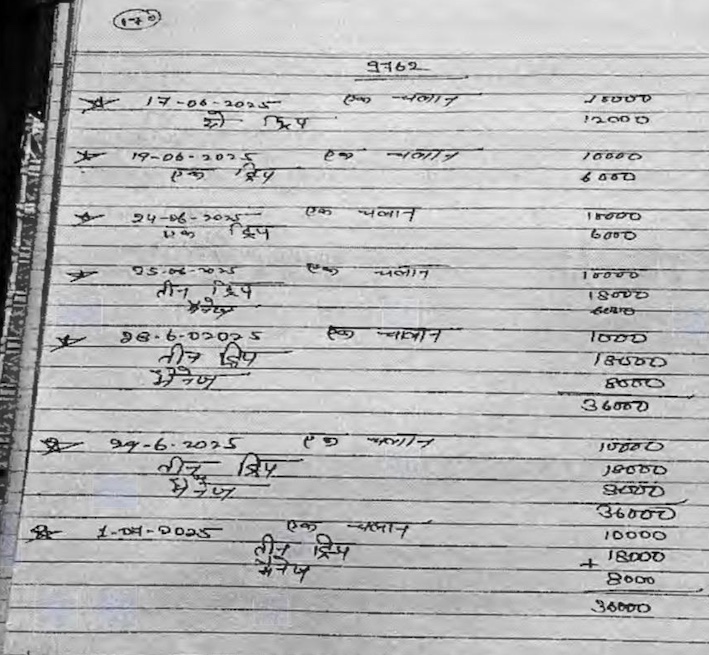 170
9762
17-06-2025 एक चलान 18000
दो ट्रिप 12000
19-06-2025 एक चलान 10000
एक ट्रिप 6000
24-06-2025 एक चलान 10000
एक ट्रिप 6000
25-06-2025 एक चलान 10000
तीन ट्रिप 18000
मैनेज 6000
28-6-02025 एक चलान 1000
तीन ट्रिप 18000
मैनेज 8000
36000
29-6-2025 एक चलान 10000
तीन ट्रिप 18000
मैनेज 8000
36000
1-07-2025 एक चलान 10000
तीन ट्रिप + 18000
मैनेज 8000
36000